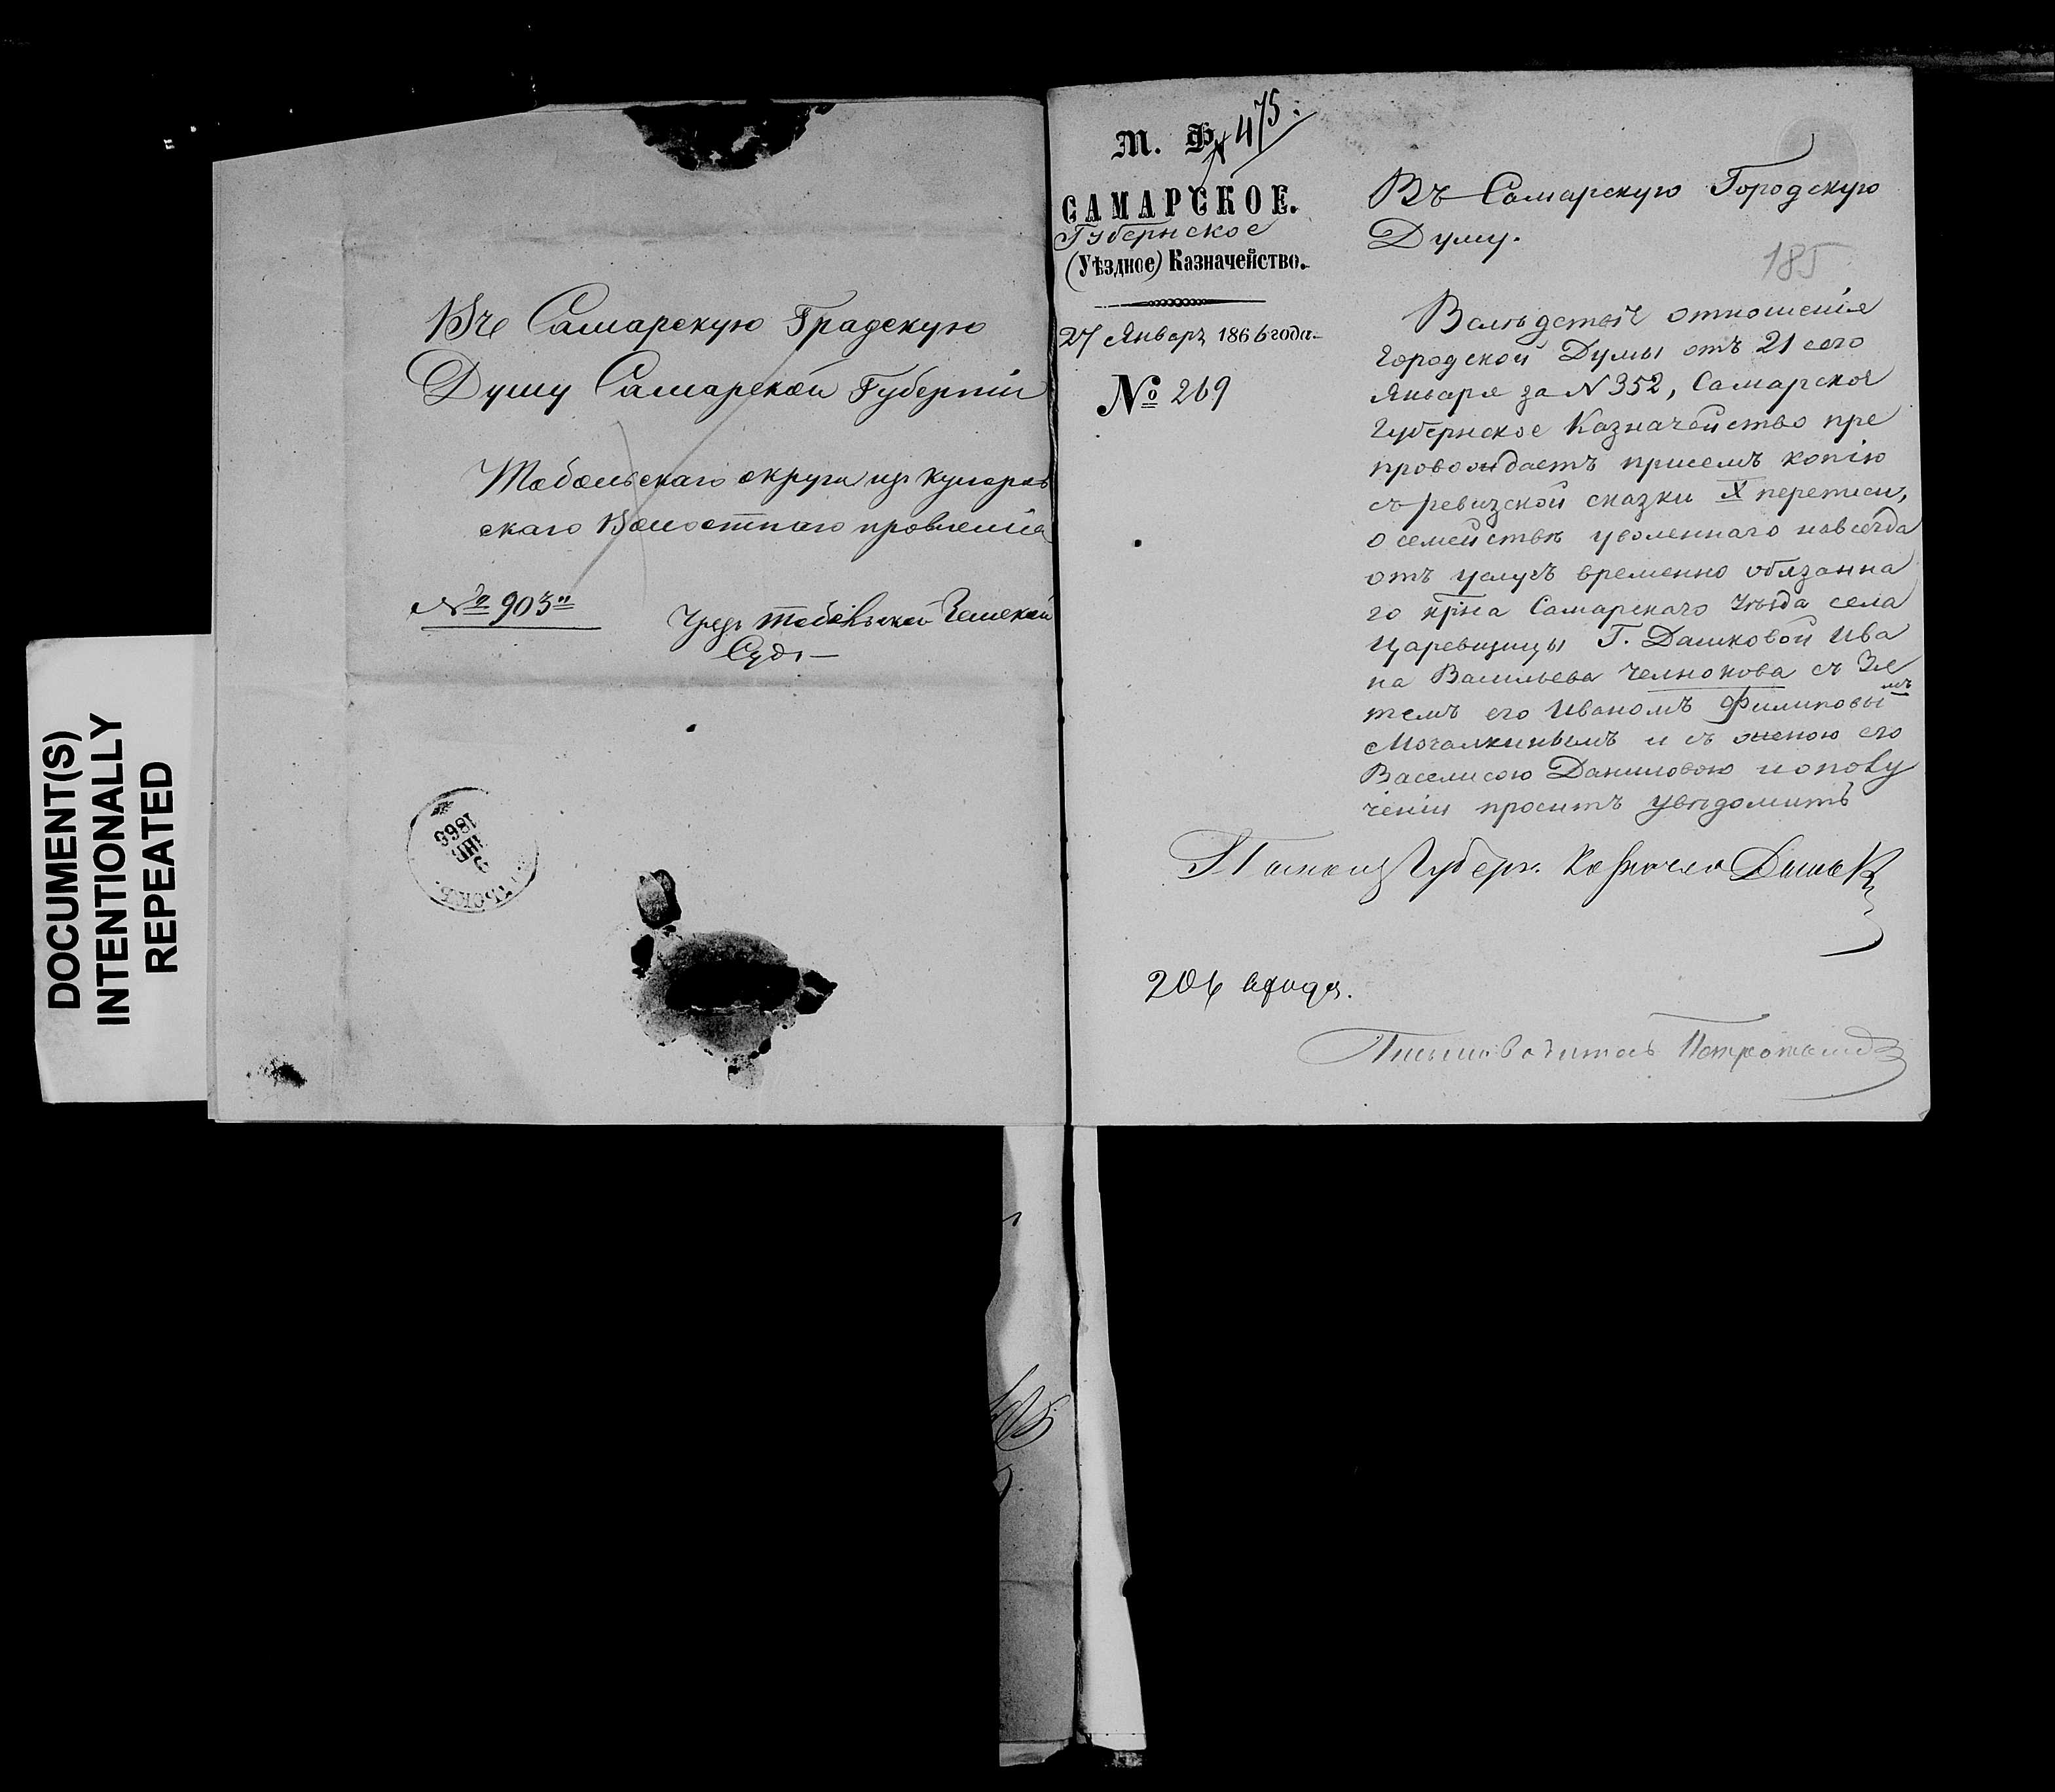 DOCUMENT(S)
INTENTIONALLY
REPEATED
Въ Самарскую Градскую
Думу Самарской Губерніи
Тобольскаго округа изъ
скаго Волостнаго провленія
№ 903"
Чрезъ Тобольской Земской
Судъ —
1866
М. Ф.
№ 475
САМАРСКОЕ.
Губернское
(Уѣздное) Казначейство.
27 Январь 1866 года.
№ 269
Въ Самарскую Городскую
Думу.
185
Вслѣдствіе отношенія
Городской Думы отъ 21 сего
Января за N 352, Самарское
Губернское Казначейство пре
провождаетъ присемъ копію
съ ревизской сказки X переписи,
о семействѣ уволеннаго навсегда
отъ услугъ временно обязанна
го кр̃на Самарскаго Уѣзда села
Царевщины Г. Дашковой Ива
на Васильева Челнокова съ Зя
темъ его Иваномъ Филиповы
мъ
Мочалкинымъ и съ женою его
Васелисою Даниловою и о полу
ченіи проситъ увѣдомить
Губерн. Казначея
Письмоводитель